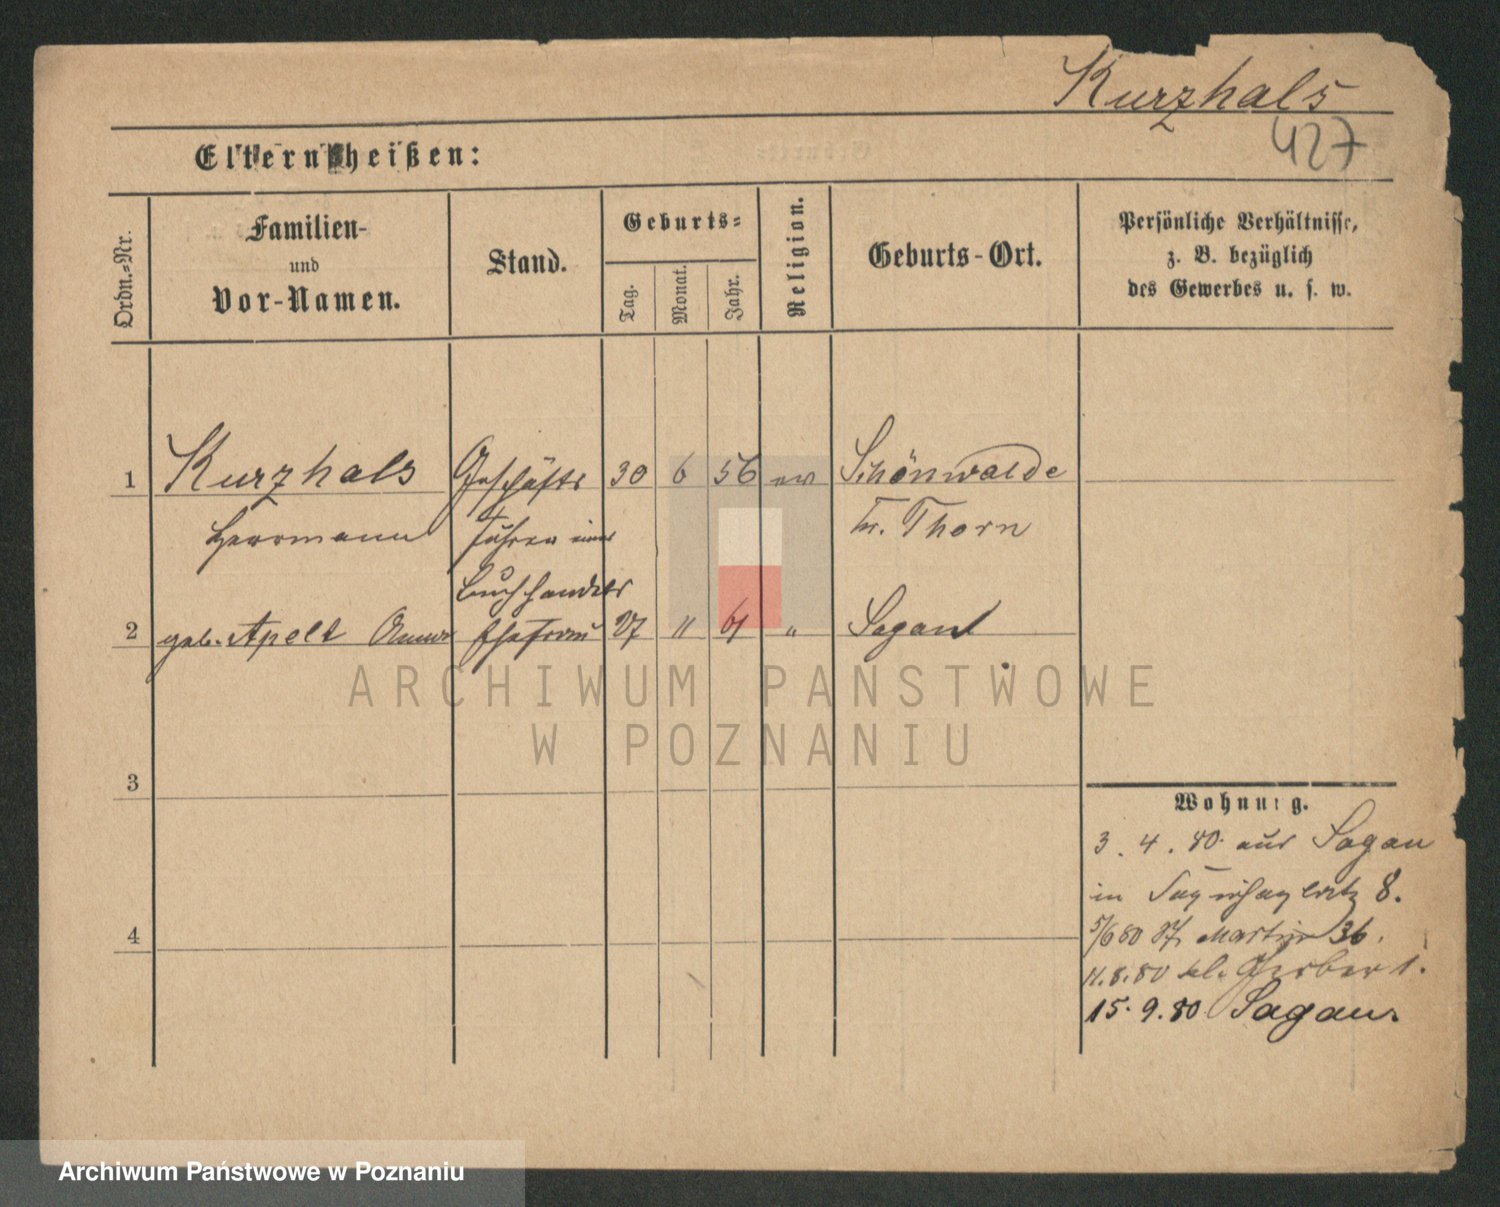 Kurzhals
427
Eltern heißen:
Ordn.-Nr.
Familien-
und
Vor-Namen.
Stand.
Geburts-
Tag.
Monat.
Jahr.
Religion.
Geburts-Ort.
Persönliche Verhältnisse,
z. B. bezüglich
des Gewerbes u. s. w.
1 Kurzhals Geschäfts 30 6 56 ev Schönwalde
Herrmann führer eines Kr. Thorn
Buchhandels
2 geb. Apelt Anna Ehefrau 27 11 61 " Sagan
ARCHIWUM PAŃSTWOWE
W POZNANIU
3
Wohnung.
3. 4. 80. aus Sagan
in 8.
4
5/6 80 St. Martin 36.
11.8.80 kl. Gerber 1.
15. 9. 80 Sagan.
Archiwum Państwowe w Poznaniu